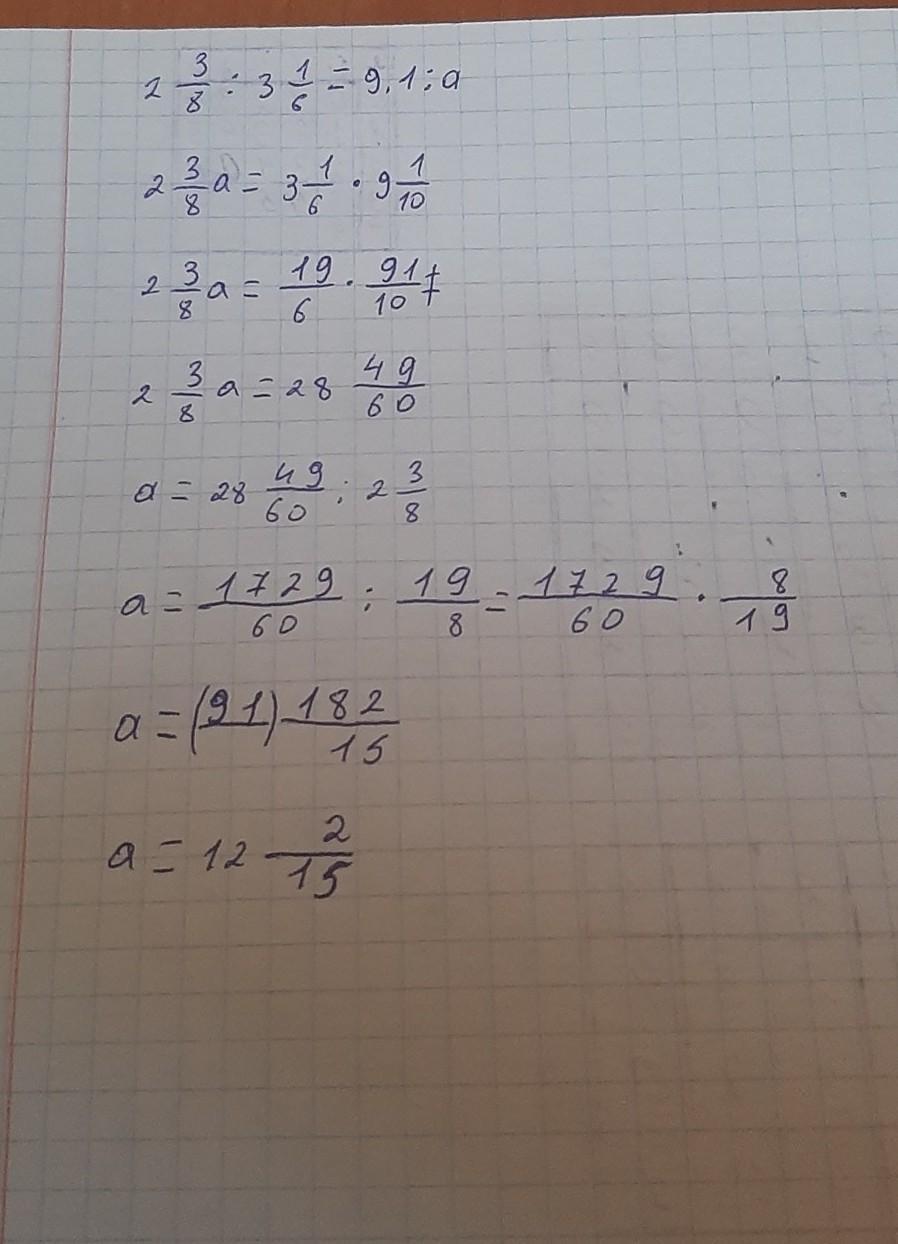 2 3/8 : 3 1/6 = 9,1 : a
2 3/8 a = 3 1/6 · 9 1/10
2 3/8 a = 19/6 · 91/10
2 3/8 a = 28 49/60
a = 28 49/60 : 2 3/8
a = 1729/60 : 19/8 = 1729/60 · 8/19
a = (91) 182/15
a = 12 2/15